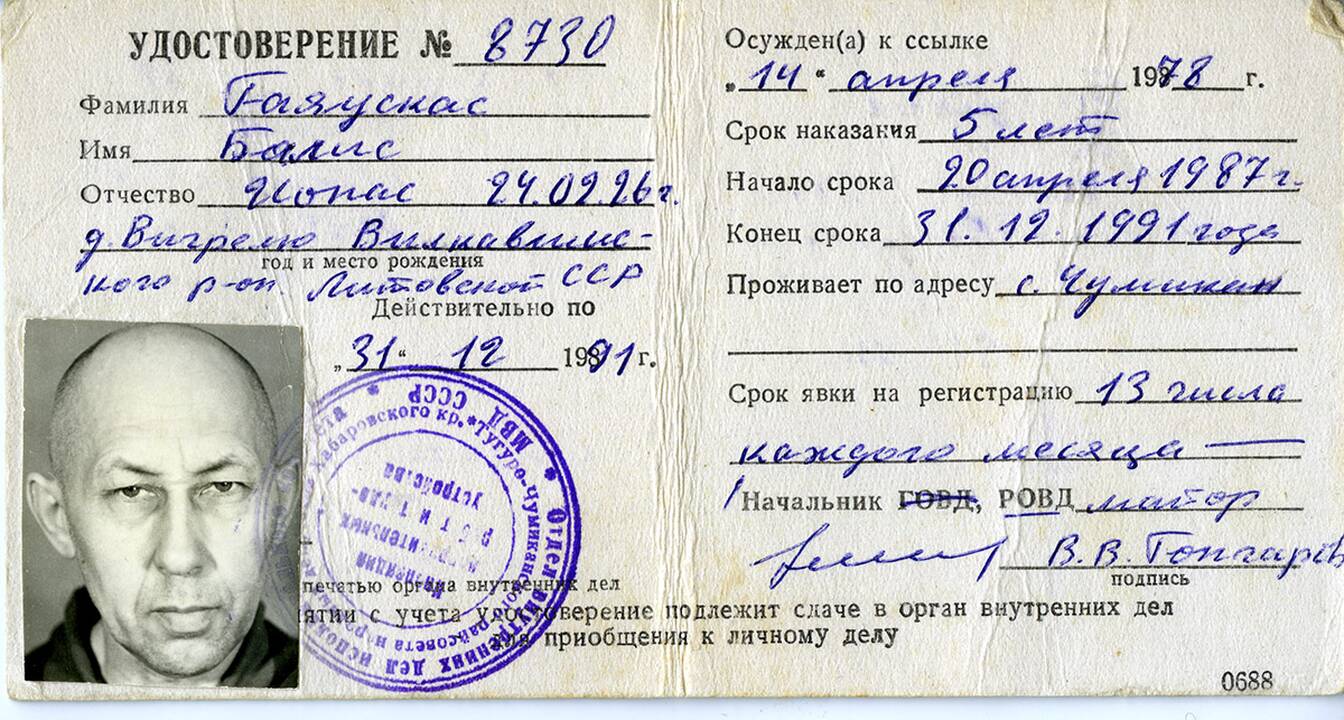 УДОСТОВЕРЕНИЕ № 8730
Фамилия Гаяускас
Имя Балис
Отчество Йонас 24.02.26 г.
д. Вигрелю Вилкавишс-
год и место рождения
кого р-он Литовской ССР
Действительно по
„31“ 12 1991 г.
МВД СССР
Отдел внутренних дел
Хабаровского кр. * Тугуро-Чумиканского райсовета
печатью органа внутренних дел
ятии с учета удостоверение подлежит сдаче в орган внутренних дел
для приобщения к личному делу
Осужден(а) к ссылке
„14“ апреля 1978 г.
Срок наказания 5 лет
Начало срока 20 апреля 1987 г.
Конец срока 31. 12. 1991 года
Проживает по адресу с. Чумикан
Срок явки на регистрацию 13 числа
каждого месяца
Начальник ГОВД, РОВД майор
В. В. Гончаров
подпись
0688